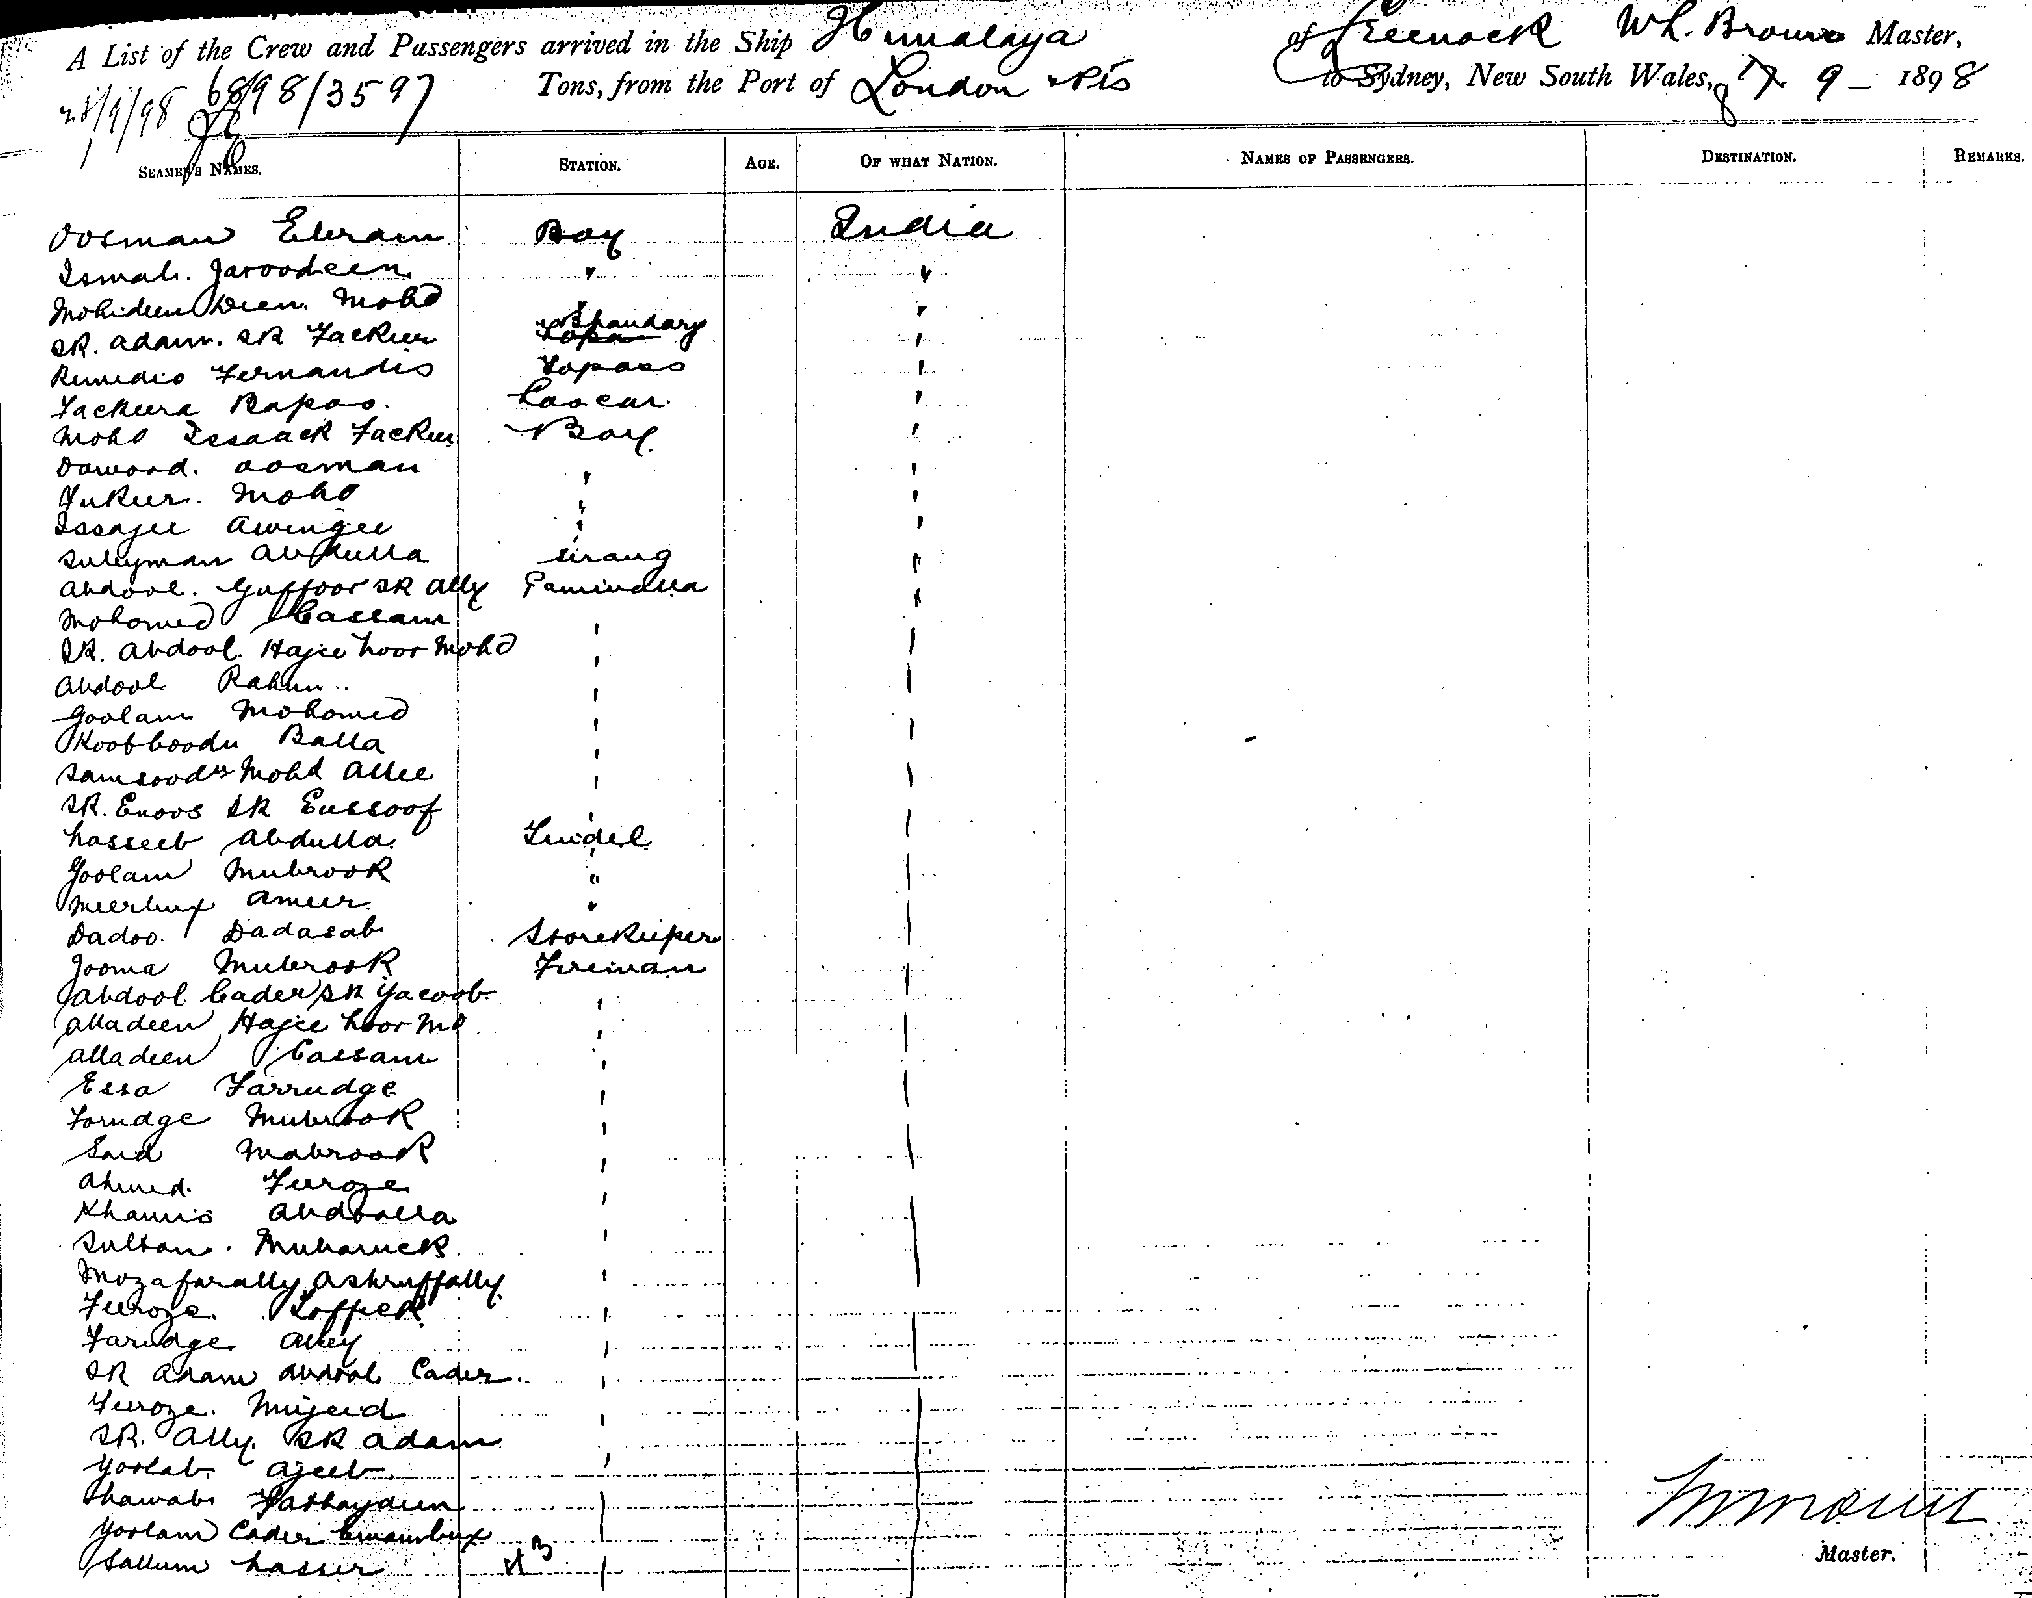 A List of the Crew and Passengers arrived in the Ship Himalaya of Greenock W. L. Brown Master,
28/9/98 68/98/3597 Tons, from the Port of London &Pts to Sydney, New South Wales, 9 - 1898
SEAMEN'S NAMES. STATION. AGE. OF WHAT NATION. NAMES OF PASSENGERS. DESTINATION. REMARKS.
Oosman Ebram Boy India
Ismal. Jaroodeen " "
Mohideen Deen Mohd " "
SK. Adam. SK Fackeer Bhandary "
Remedio Fernandis Topass "
Fackera Bapoo. Cascar "
Mohd Issaack Fackeer Boy "
Dawood. Oosman " "
Fukeer. Mohd " "
Issajee Awenjee " "
Suleyman Abdulla Sirang "
Abdool. Guffoor SK Ally Paniwalla "
Mohomed Cassam " "
SK. Abdool Hajee Noor Mohd " "
Abdool Rahim " "
Goolam Mohomed " "
Kootboodu Balla " "
Samsoodn Mohd Allee " "
SK. Enoos SK Eussoof " "
Nasseeb Abdulla Tindel "
Goolam Mubrook " "
Meerbux Ameer " "
Dadoo Dadasab Storekeeper "
Jooma Mubrook Fireman "
Abdool Cader SK Yacoob " "
Alladeen Hajee Noor Md " "
Alladeen Cassam " "
Essa Farrudge " "
Forudge Mubrook " "
Said Mabrook " "
Ahmed. Feroze " "
Khamis Abdoolla " "
Sultan. Mubaruck " "
Mozafarally Ashruffally " "
Feroze. Loffer " "
Farudge Alley " "
SK Adam Abdool Cader " "
Feroze. Mujeed " "
SK. Ally. SK Adam " "
Goolab Ajeeb " "
Nawab "
Goolam Cader Emambux
Sallum Nasser 43
Master.